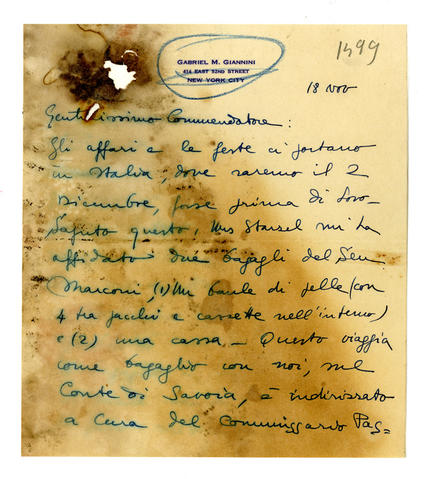 GABRIEL M. GIANNINI
414 EAST 52ND STREET
NEW YORK CITY
1499
18 nov
Gentilissimo Commendatore:
Gli affari e le feste ci portano
in Italia, dove saremo il 2
Dicembre, forse prima di loro-
Saputo questo, Mrs mi ha
affidato due bagagli del Sen
Marconi, (1) un baule di pelle (con
4 tra pacchi e cassette nell'interno)
e (2) una cassa. - Questo viaggia
come bagaglio con noi, sul
Conte di Savoia, è indirizzato
a cura del Commissario Pag=